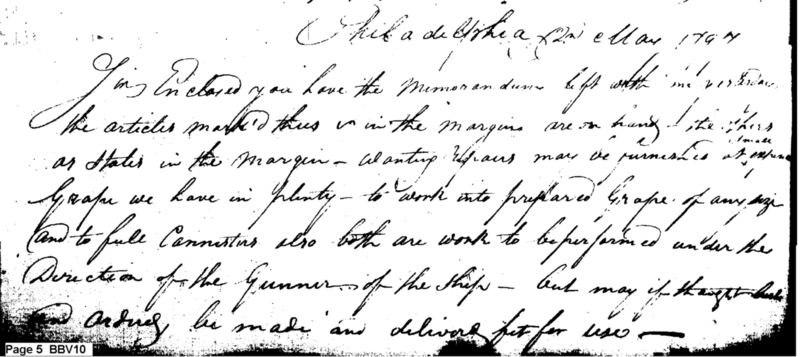 Philadelphia 2n May 1797
Sir Enclosed you have the Memorandum left with me yesterday
the articles mark'd thus v in the margin are on hand the others
as States in the Margin - Wanting repairs may be furnished at small expence
Grape we have in plenty - to work into prepared Grape of any size
and to fill Cannisters also both are work to be performed under the
Direction of the Gunner of the Ship - but may if thought
and orderd, be made and deliverd fit for use -
Page 5 BBV10